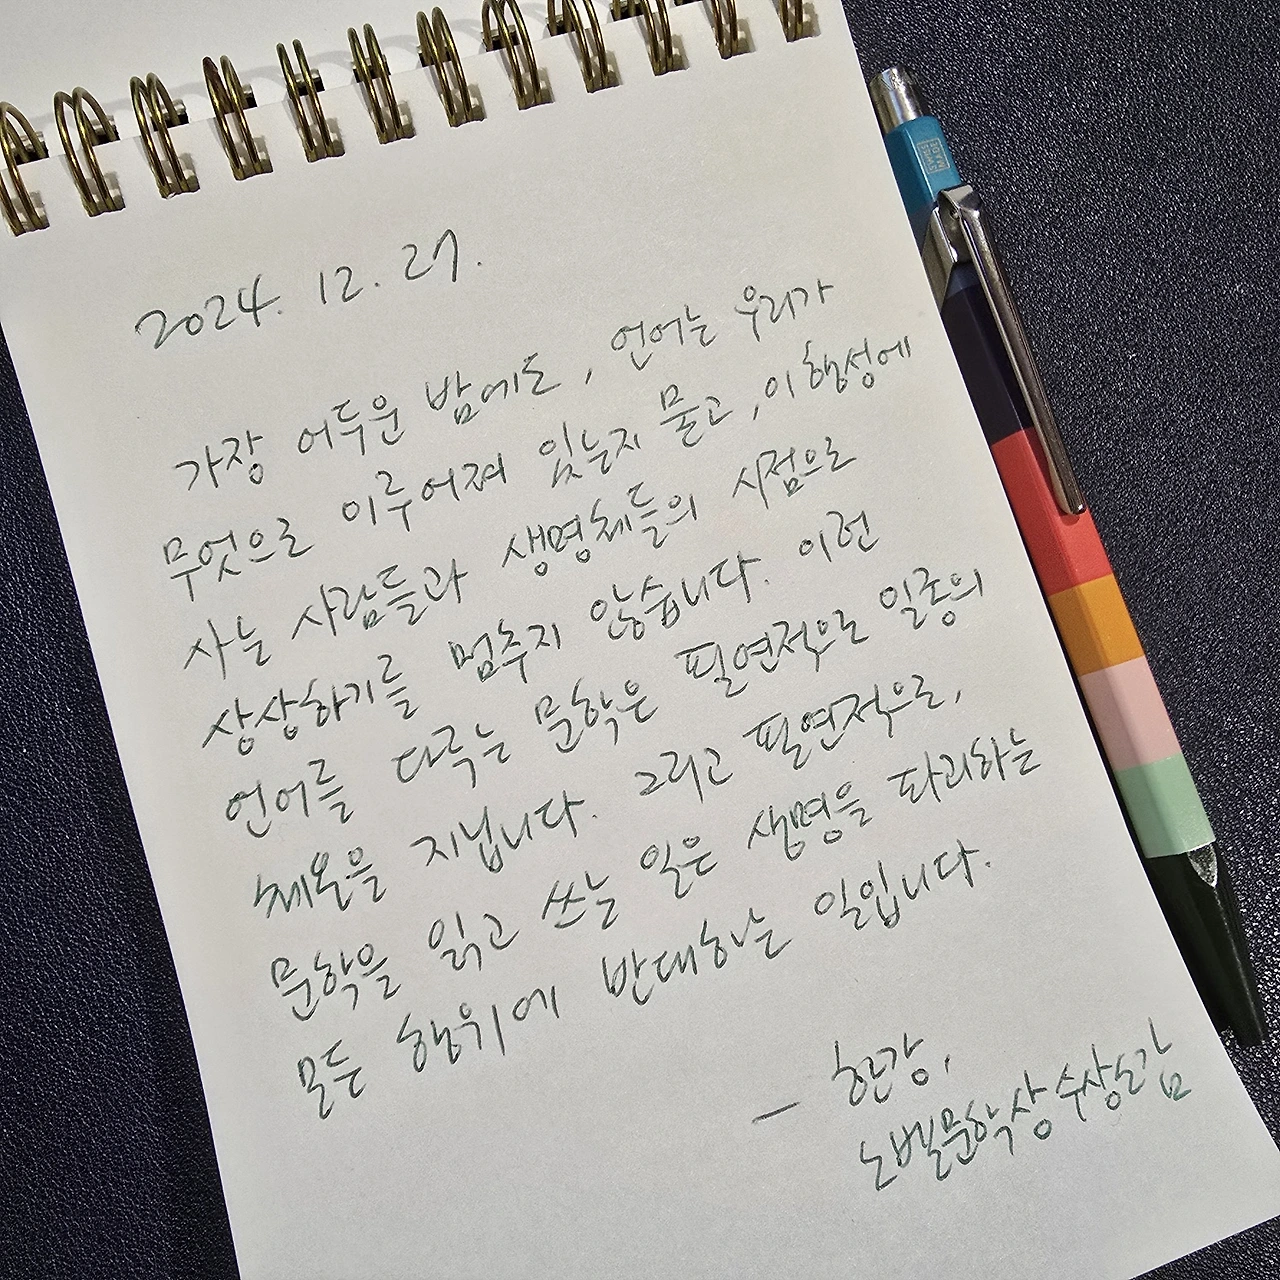 2024. 12. 27.
가장 어두운 밤에도, 언어는 우리가
무엇으로 이루어져 있는지 묻고, 이 행성에
사는 사람들과 생명체들의 시점으로
상상하기를 멈추지 않습니다. 이런
언어를 다루는 문학은 필연적으로 일종의
체온을 지닙니다. 그리고 필연적으로,
문학을 읽고 쓰는 일은 생명을 파괴하는
모든 행위에 반대하는 일입니다.
— 한강,
노벨문학상 수상소감